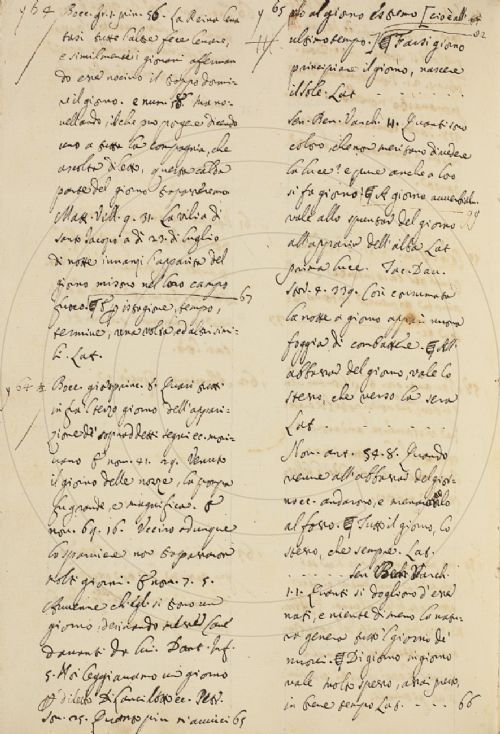 Bocc. g. 1. prin. 56. La Reina leva
tasi tutte l'altre fece levare,
e similmente i giovani afferman
do esser nocivo il troppo dormi-
re il giorno. e num. 58. ma no-
vellando, il che può porgere dicendo
uno a tutta la compagnia, che
ascolta diletto, questa calda
parte del giorno trapasseremo
Matt. Vill. 9. 31. La vilia di
Santo Jacopo a dì 23. di luglio
di notte innanzi l'apparita del
giorno misono nel loro campo
fuoco. ¶ Per istagione, tempo,
termine, una volta ed altri simi-
li. Lat.
Bocc. g. prin. 8. Quasi tutti
infra 'l terzo giorno dell'appari-
zione de' sopraddetti segni ec. mori-
vano. E nov. 41. 29. Venuto
il giorno delle nozze, la pompa
fu grande, e magnifica. E
nov. 69. 16. Ucciso adunque
lo sparviere non trapassaron
molti giorni. E nov. 7. 5.
Avvenne ch'egli si trovò un
giorno, desinando
davanti da lui. Dant. Inf.
5. Noi leggiavamo un giorno
per diletto Di Lancillotto ec. Petr.
son. 25. Quanto più m'avvicino 65
dì al giorno estremo [cioè all'
ultimo tempo. ¶ Farsi giorno
principiare il giorno, nascere
il sole. Lat
Sen. Ben. Varch. 4. Quanti sono
coloro, che non meritano di vedere
la luce? e pure anche a loro
si fa giorno. ¶ A giorno avverbialm.
vale allo spuntar del giorno
all'apparir dell'alba Lat
prima luce. Tac. Dav.
Stor. 4. 339. Così consumata
la notte a giorno apparì nuova
foggia di combattere. ¶ All'
abbassar del giorno, vale lo
stesso, che verso la sera
Lat
Nov. ant. 54. 8. Quando
venne all'abbassar del gior-
no ec. andarono, e
al fosso. ¶ Tutto il giorno, lo
stesso, che sempre. Lat.
Sen Ben Varch.
1. 1. Quanti si dogliono d'esser
nati, e niente di meno la natu-
ra genera tutto 'l giorno de'
nuovi. ¶ Di giorno in giorno
vale molto spesso, assai presto,
in breve tempo Lat. 66